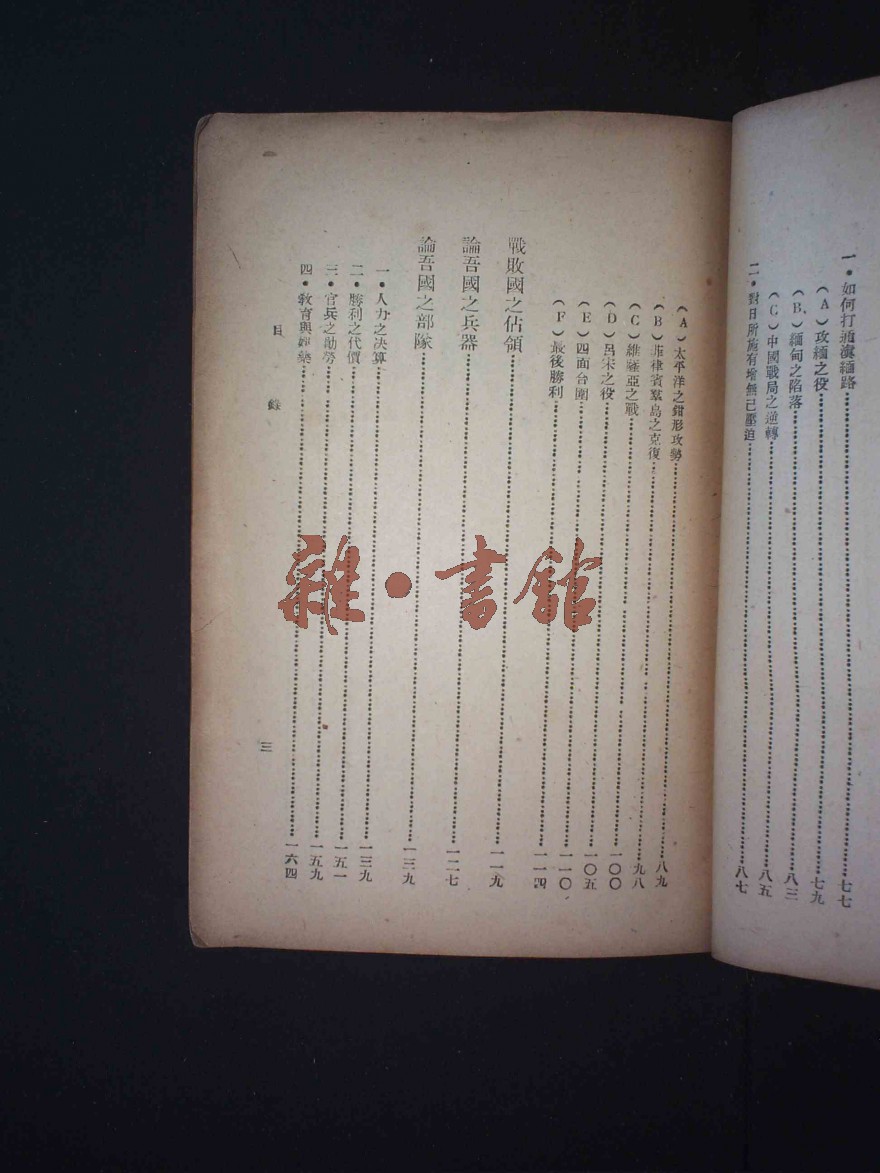 一・如何打通滇緬路……七七
（A）攻緬之役……七九
（B）緬甸之陷落……八三
（C）中國戰局之逆轉……八五
二・對日所施有增無己壓迫……八七
（A）太平洋之鉗形攻勢……八九
（B）菲律賓羣島之克復……九八
（C）維薩亞之戰……一〇〇
（D）呂宋之役……一〇五
（E）四面台圍……一一〇
（F）最後勝利……一一四
戰敗國之佔領……一一九
論吾國之兵器……一二七
論吾國之部隊……一三九
一・人力之決算……一三九
二・勝利之代價……一五一
三・官兵之勛勞……一五九
四・敎育與娛樂……一六四
目錄
三
雜・書館